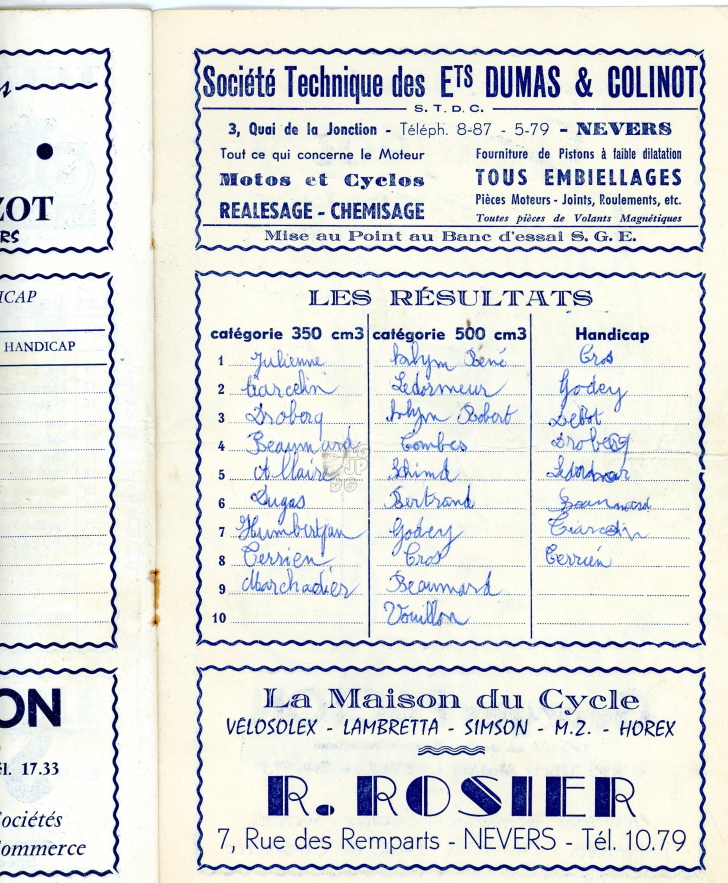 ZOT
RS
ICAP
HANDICAP
ON
él. 17.33
ociétés
ommerce
Société Technique des ETS DUMAS & COLINOT
S. T. D. C.
3, Quai de la Jonction - Téléph. 8-87 - 5-79 - NEVERS
Tout ce qui concerne le Moteur
Motos et Cyclos
REALESAGE - CHEMISAGE
Fourniture de Pistons à faible dilatation
TOUS EMBIELLAGES
Pièces Moteurs - Joints, Roulements, etc.
Toutes pièces de Volants Magnétiques
Mise au Point au Banc d'essai S. G. E.
LES RÉSULTATS
catégorie 350 cm3 catégorie 500 cm3 Handicap
1 Julienne René Cros
2 Ciarcelin Ledormeur Godey
3 Droberg Robert Debot
4 Beaumard Combes Droberg
5 Allaire Schimd Ledormeur
6 Dugas Bertrand Beaumard
7 Humbertjan Godey
8 Cerrien Cros Cerrien
9 Marchadier Beaumard
10 Vouillon
La Maison du Cycle
VÉLOSOLEX - LAMBRETTA - SIMSON - M.Z. - HOREX
R. ROSIER
7, Rue des Remparts - NEVERS - Tél. 10.79